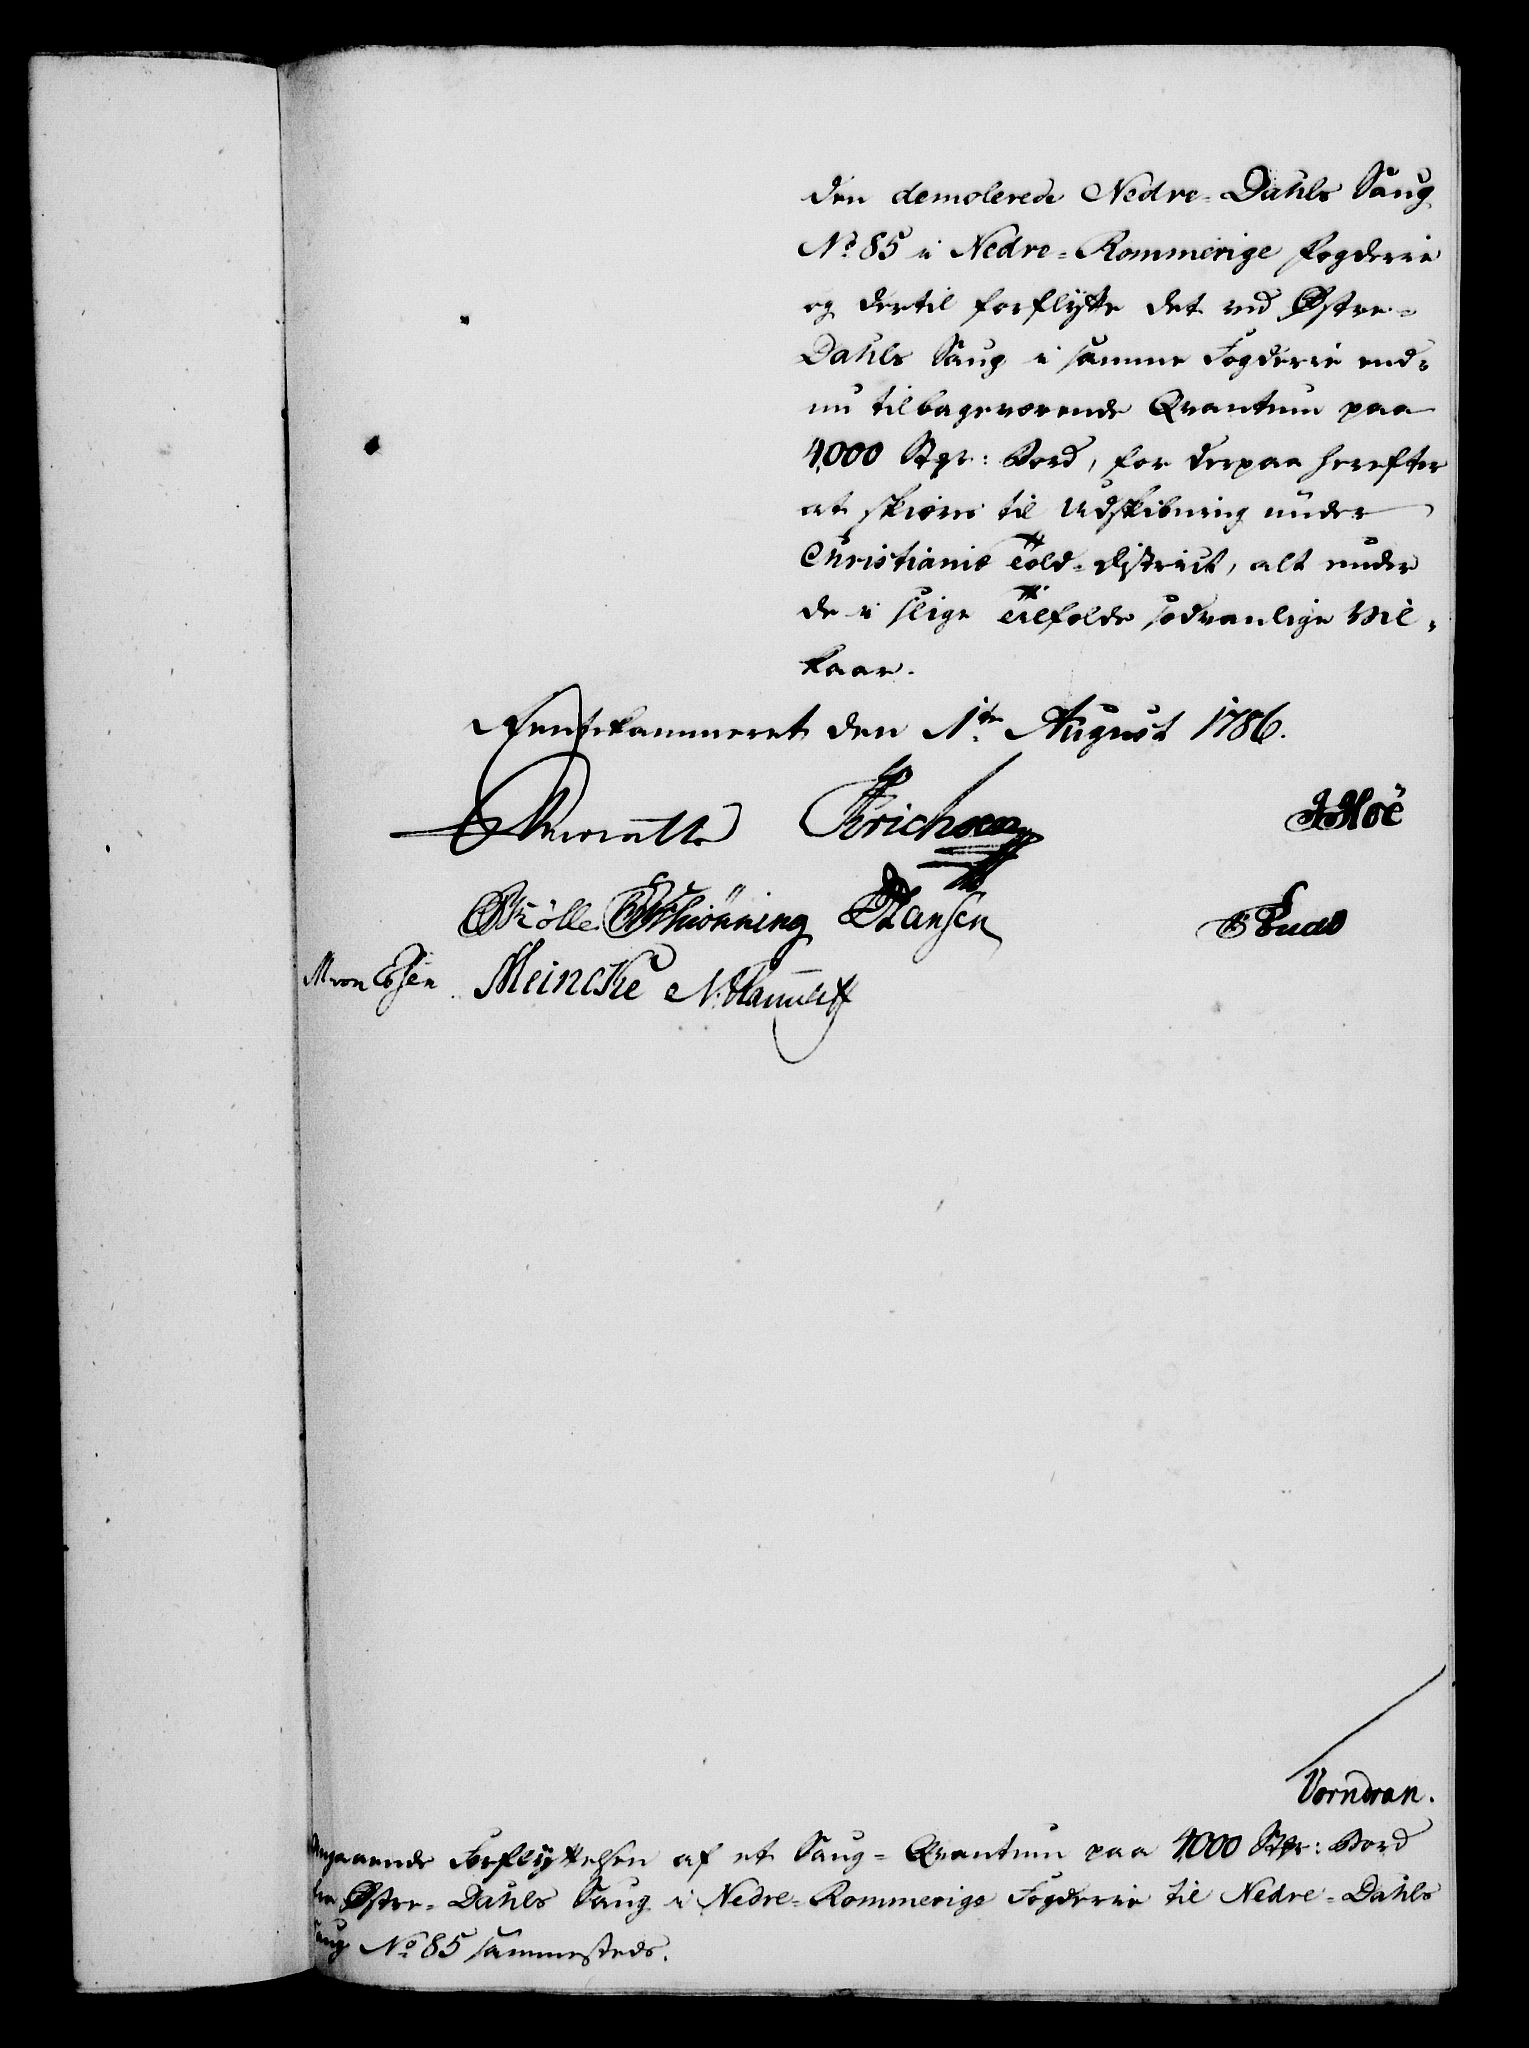 den demolerede Nedre-Dahls Saug
No 85 i Nedre-Rommerige Fogderie
og dertil forflytte det ved Østre-
Dahls Saug i samme Fogderie end-
nu tilbageværende Qvantum paa
4000 Stkr: Bord, for derpaa herefter
at skiære til Udskibning under
Christianiæ Told-District, alt under
de i slige Tilfælde sædvanlige Vil-
kaar.
Rentekammeret den 1te August 1786.
Erichsen Hoë
Mölle Schiönning Hansen
M von Essen Meincke
Vorndran.
Angaaende Forflyttelsen af et Saug-Qvantum paa 4000 Stkr: Bord
fra Østre-Dahls Saug i Nedre-Rommerige Fogderie til Nedre-Dahls
Saug No 85 sammesteds.